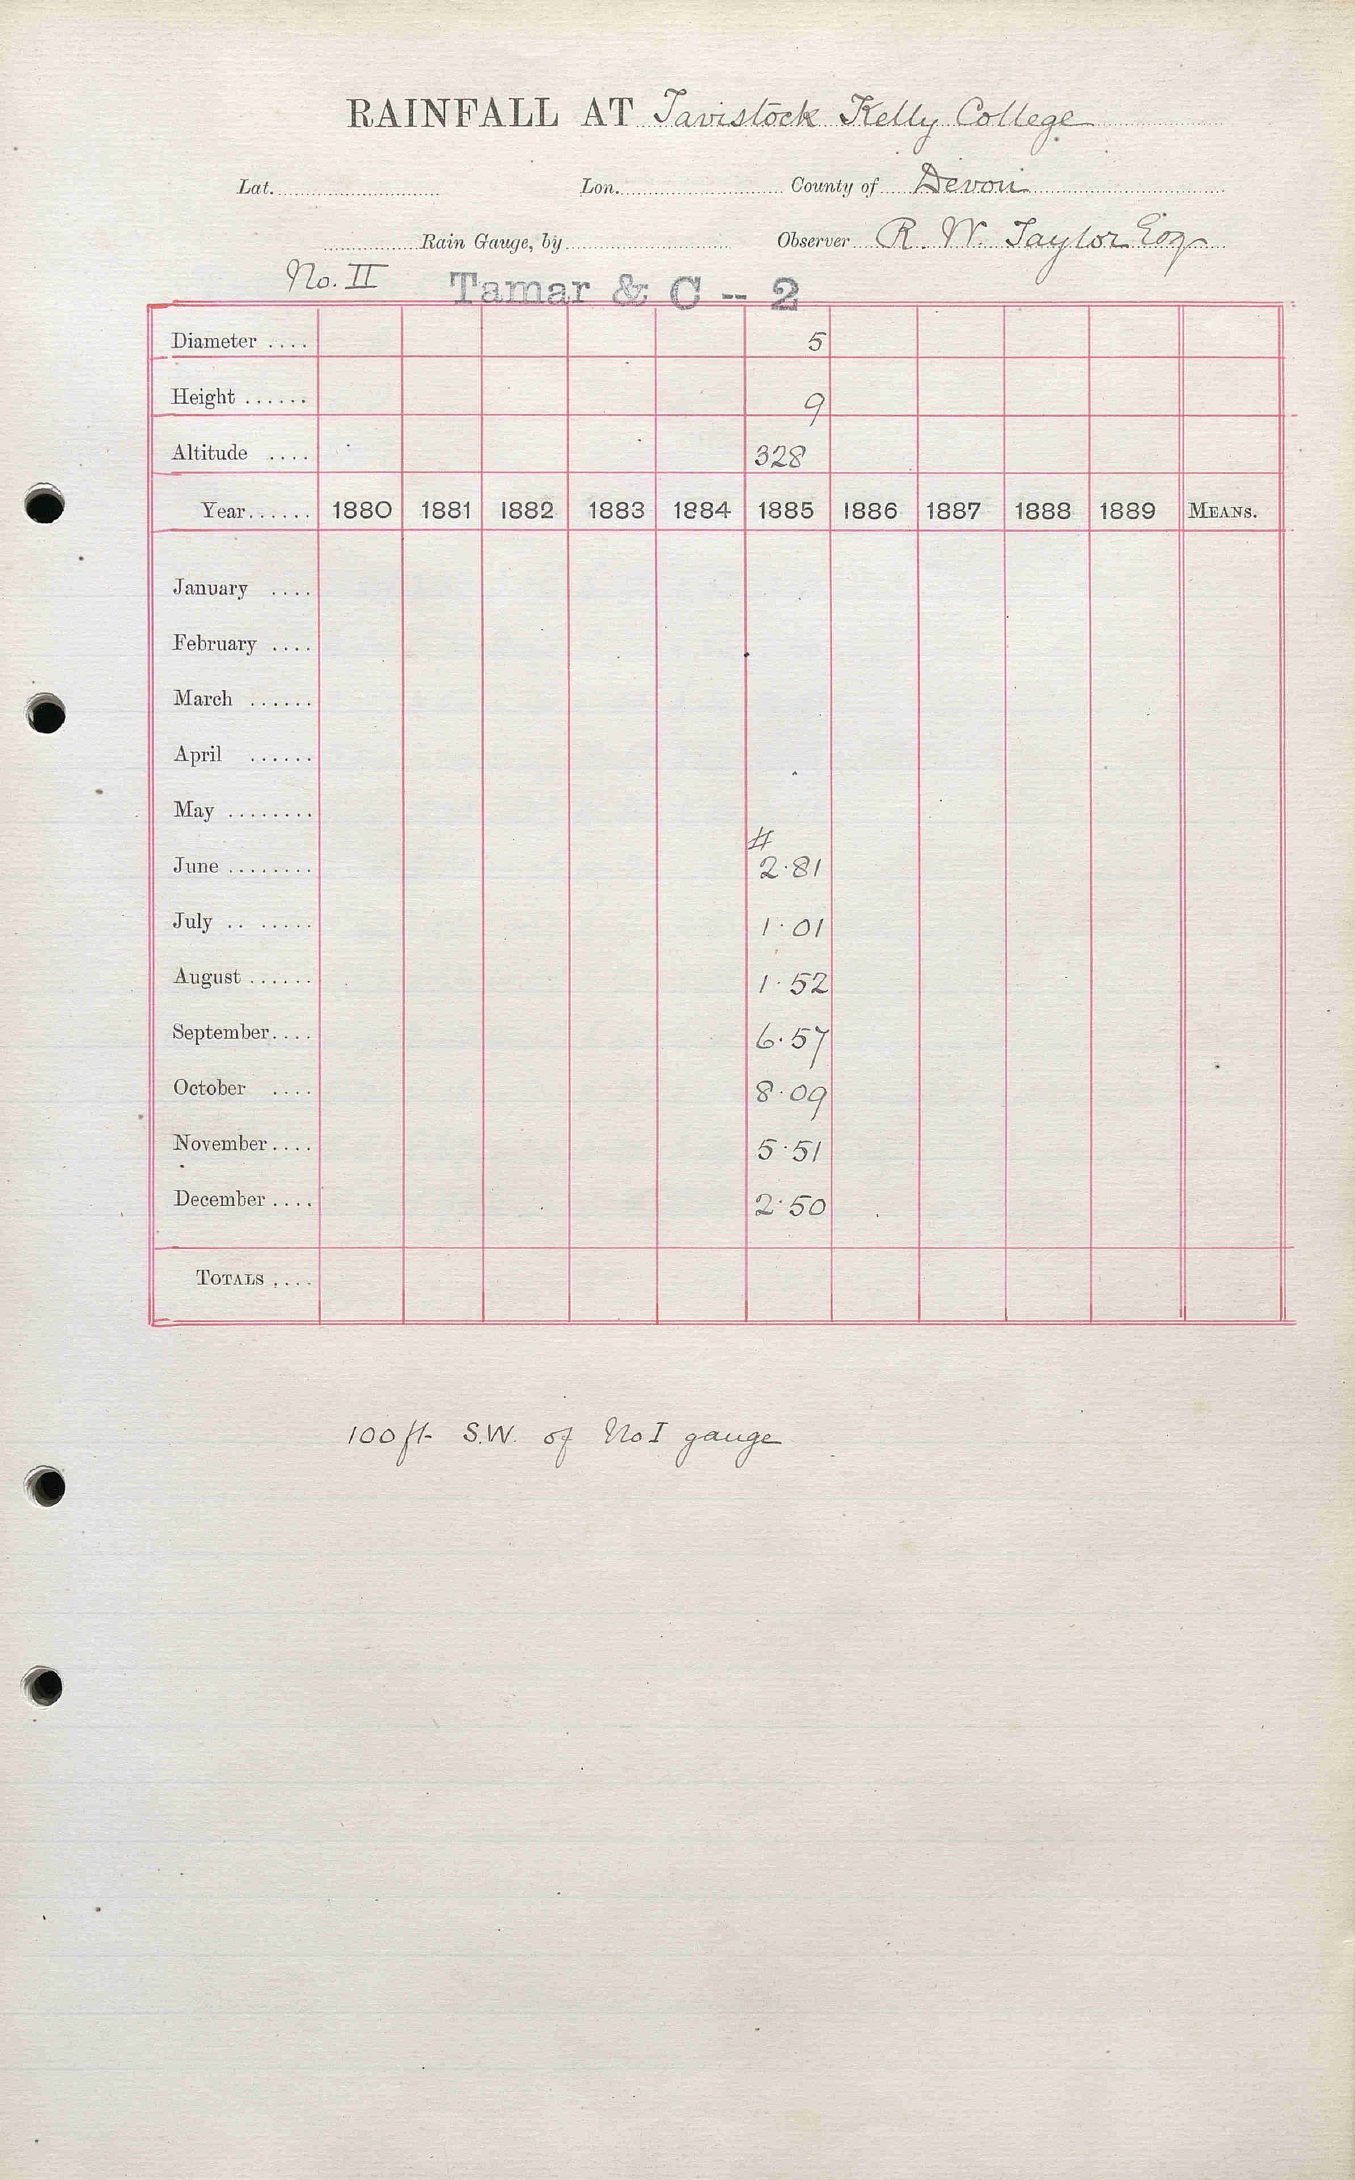 RAINFALL AT Tavistock Kelly College
Lat. Lon. County of Devon
Rain Gauge, by Observer R. W. Taylor Esq
No. II Tamar & C -- 2
Diameter .... 5
Height ...... 9
Altitude .... 328
Year...... 1880 1881 1882 1883 1884 1885 1886 1887 1888 1889 MEANS.
January ....
February ....
March ......
April ......
May ........
#
June ........ 2·81
July .. ..... 1·01
August ...... 1·52
September.... 6·57
October .... 8·09
November.... 5·51
December .... 2·50
TOTALS ....
100 ft S.W. of No I gauge